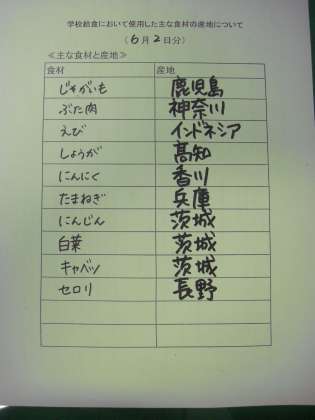 学校給食において使用した主な食材の産地について
(6月2日分)
≪主な食材と産地≫
食材 産地
じゃがいも 鹿児島
ぶた肉 神奈川
えび インドネシア
しょうが 高知
にんにく 香川
たまねぎ 兵庫
にんじん 茨城
白菜 茨城
キャベツ 茨城
セロリ 長野